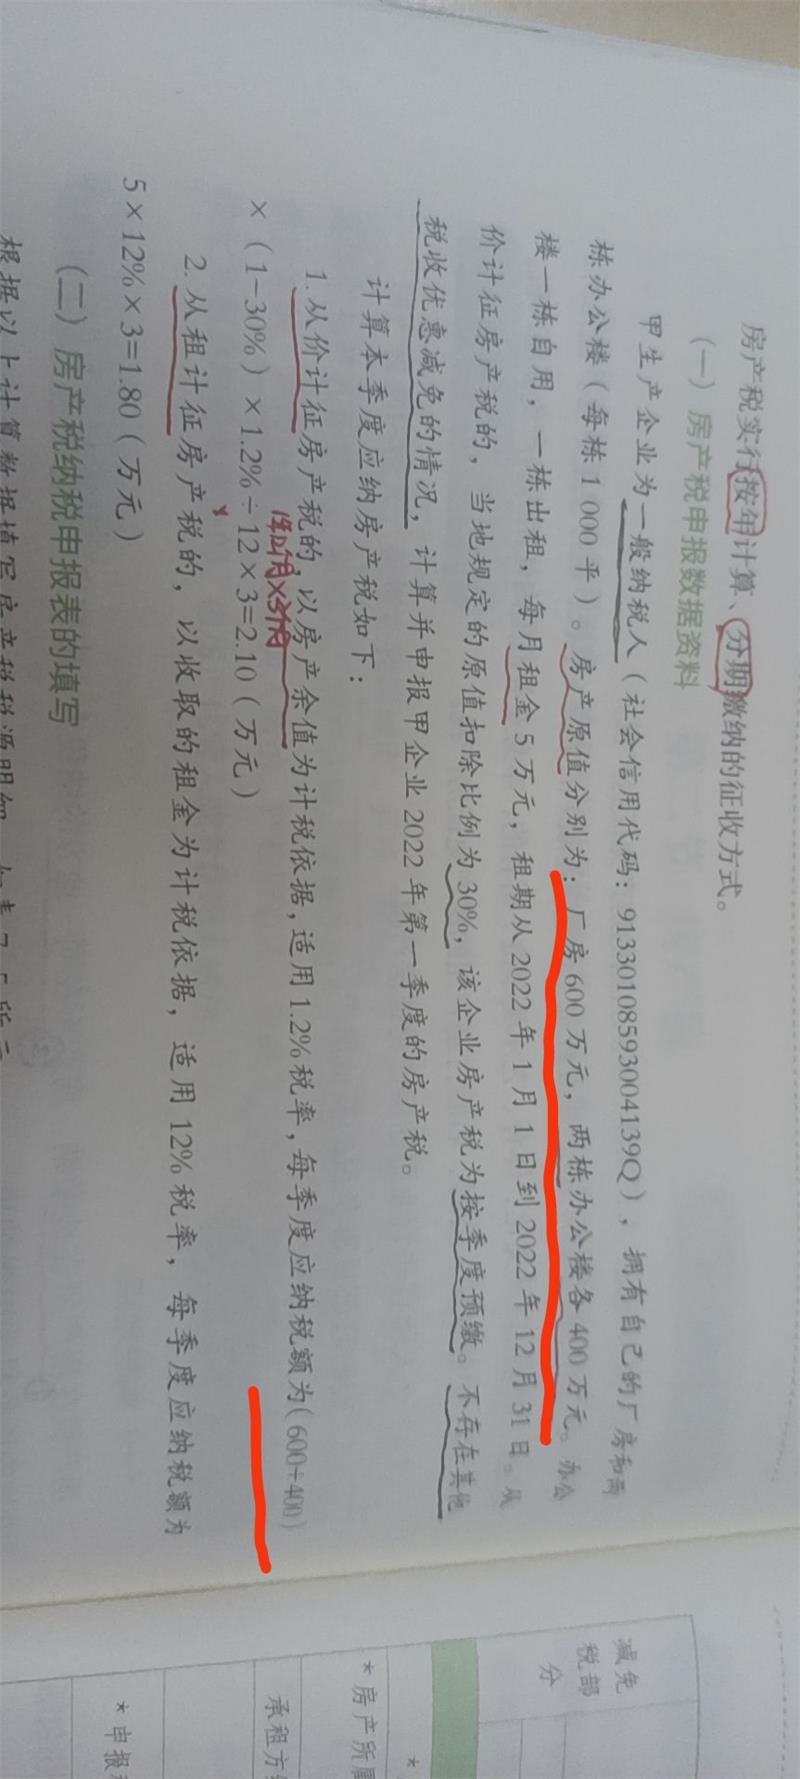 房产税实行按年计算、分期缴纳的征收方式。
（一）房产税申报数据资料
甲生产企业为一般纳税人（社会信用代码：91330108593004139Q），拥有自己的厂房和两
栋办公楼（每栋1 000平）。房产原值分别为：厂房600万元，两栋办公楼各400万元。办公
楼一栋自用，一栋出租，每月租金5万元，租期从2022年1月1日到2022年12月31日。从
价计征房产税的，当地规定的原值扣除比例为30%，该企业房产税为按季度预缴。不存在其他
税收优惠减免的情况，计算并申报甲企业2022年第一季度的房产税。
计算本季度应纳房产税如下：
1.从价计征房产税的，以房产余值为计税依据，适用1.2%税率，每季度应纳税额为（600+400）
×（1-30%）×1.2%÷12×3=2.10（万元）
2.从租计征房产税的，以收取的租金为计税依据，适用12%税率，每季度应纳税额为
5×12%×3=1.80（万元）
（二）房产税纳税申报表的填写
根据以上计算数据填写房产税税源明细
减免
税部
分
*房产所属
承租方
*申报